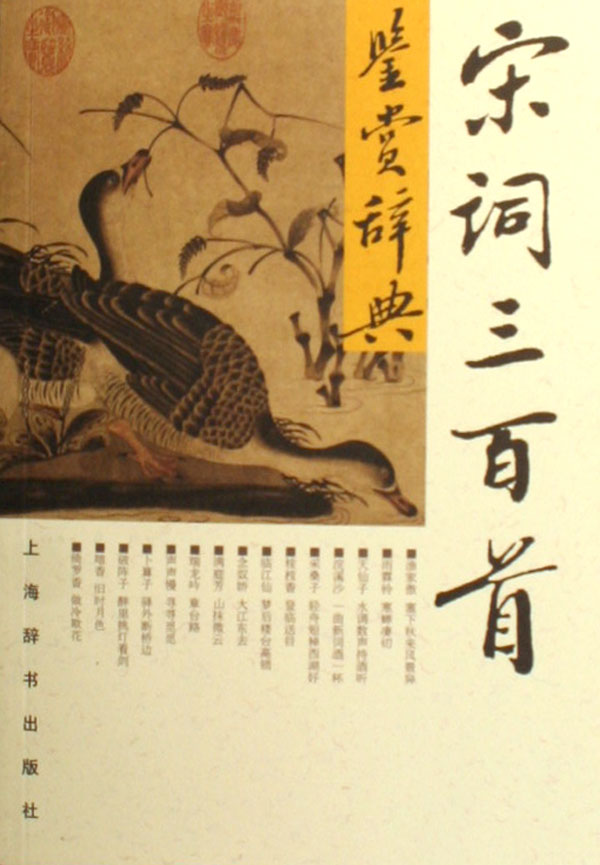 宋词三百首
鉴赏辞典
■渔家傲 塞下秋来风景异
■雨霖铃 寒蝉凄切
■天仙子 水调数声持酒听
■浣溪沙 一曲新词酒一杯
■采桑子 轻舟短棹西湖好
■桂枝香 登临送目
■临江仙 梦后楼台高锁
■念奴娇 大江东去
■满庭芳 山抹微云
■瑞龙吟 章台路
■声声慢 寻寻觅觅
■卜算子 驿外断桥边
■破阵子 醉里挑灯看剑
■暗香 旧时月色
■绮罗香 做冷欺花
上海辞书出版社